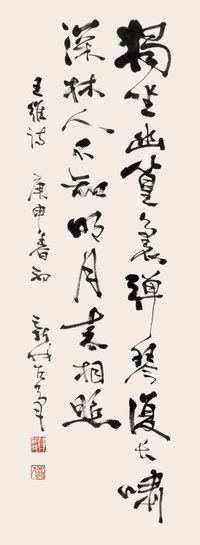 獨坐幽篁裏彈琴復长嘯
深林人不知明月来相照
王維诗 庚申春初